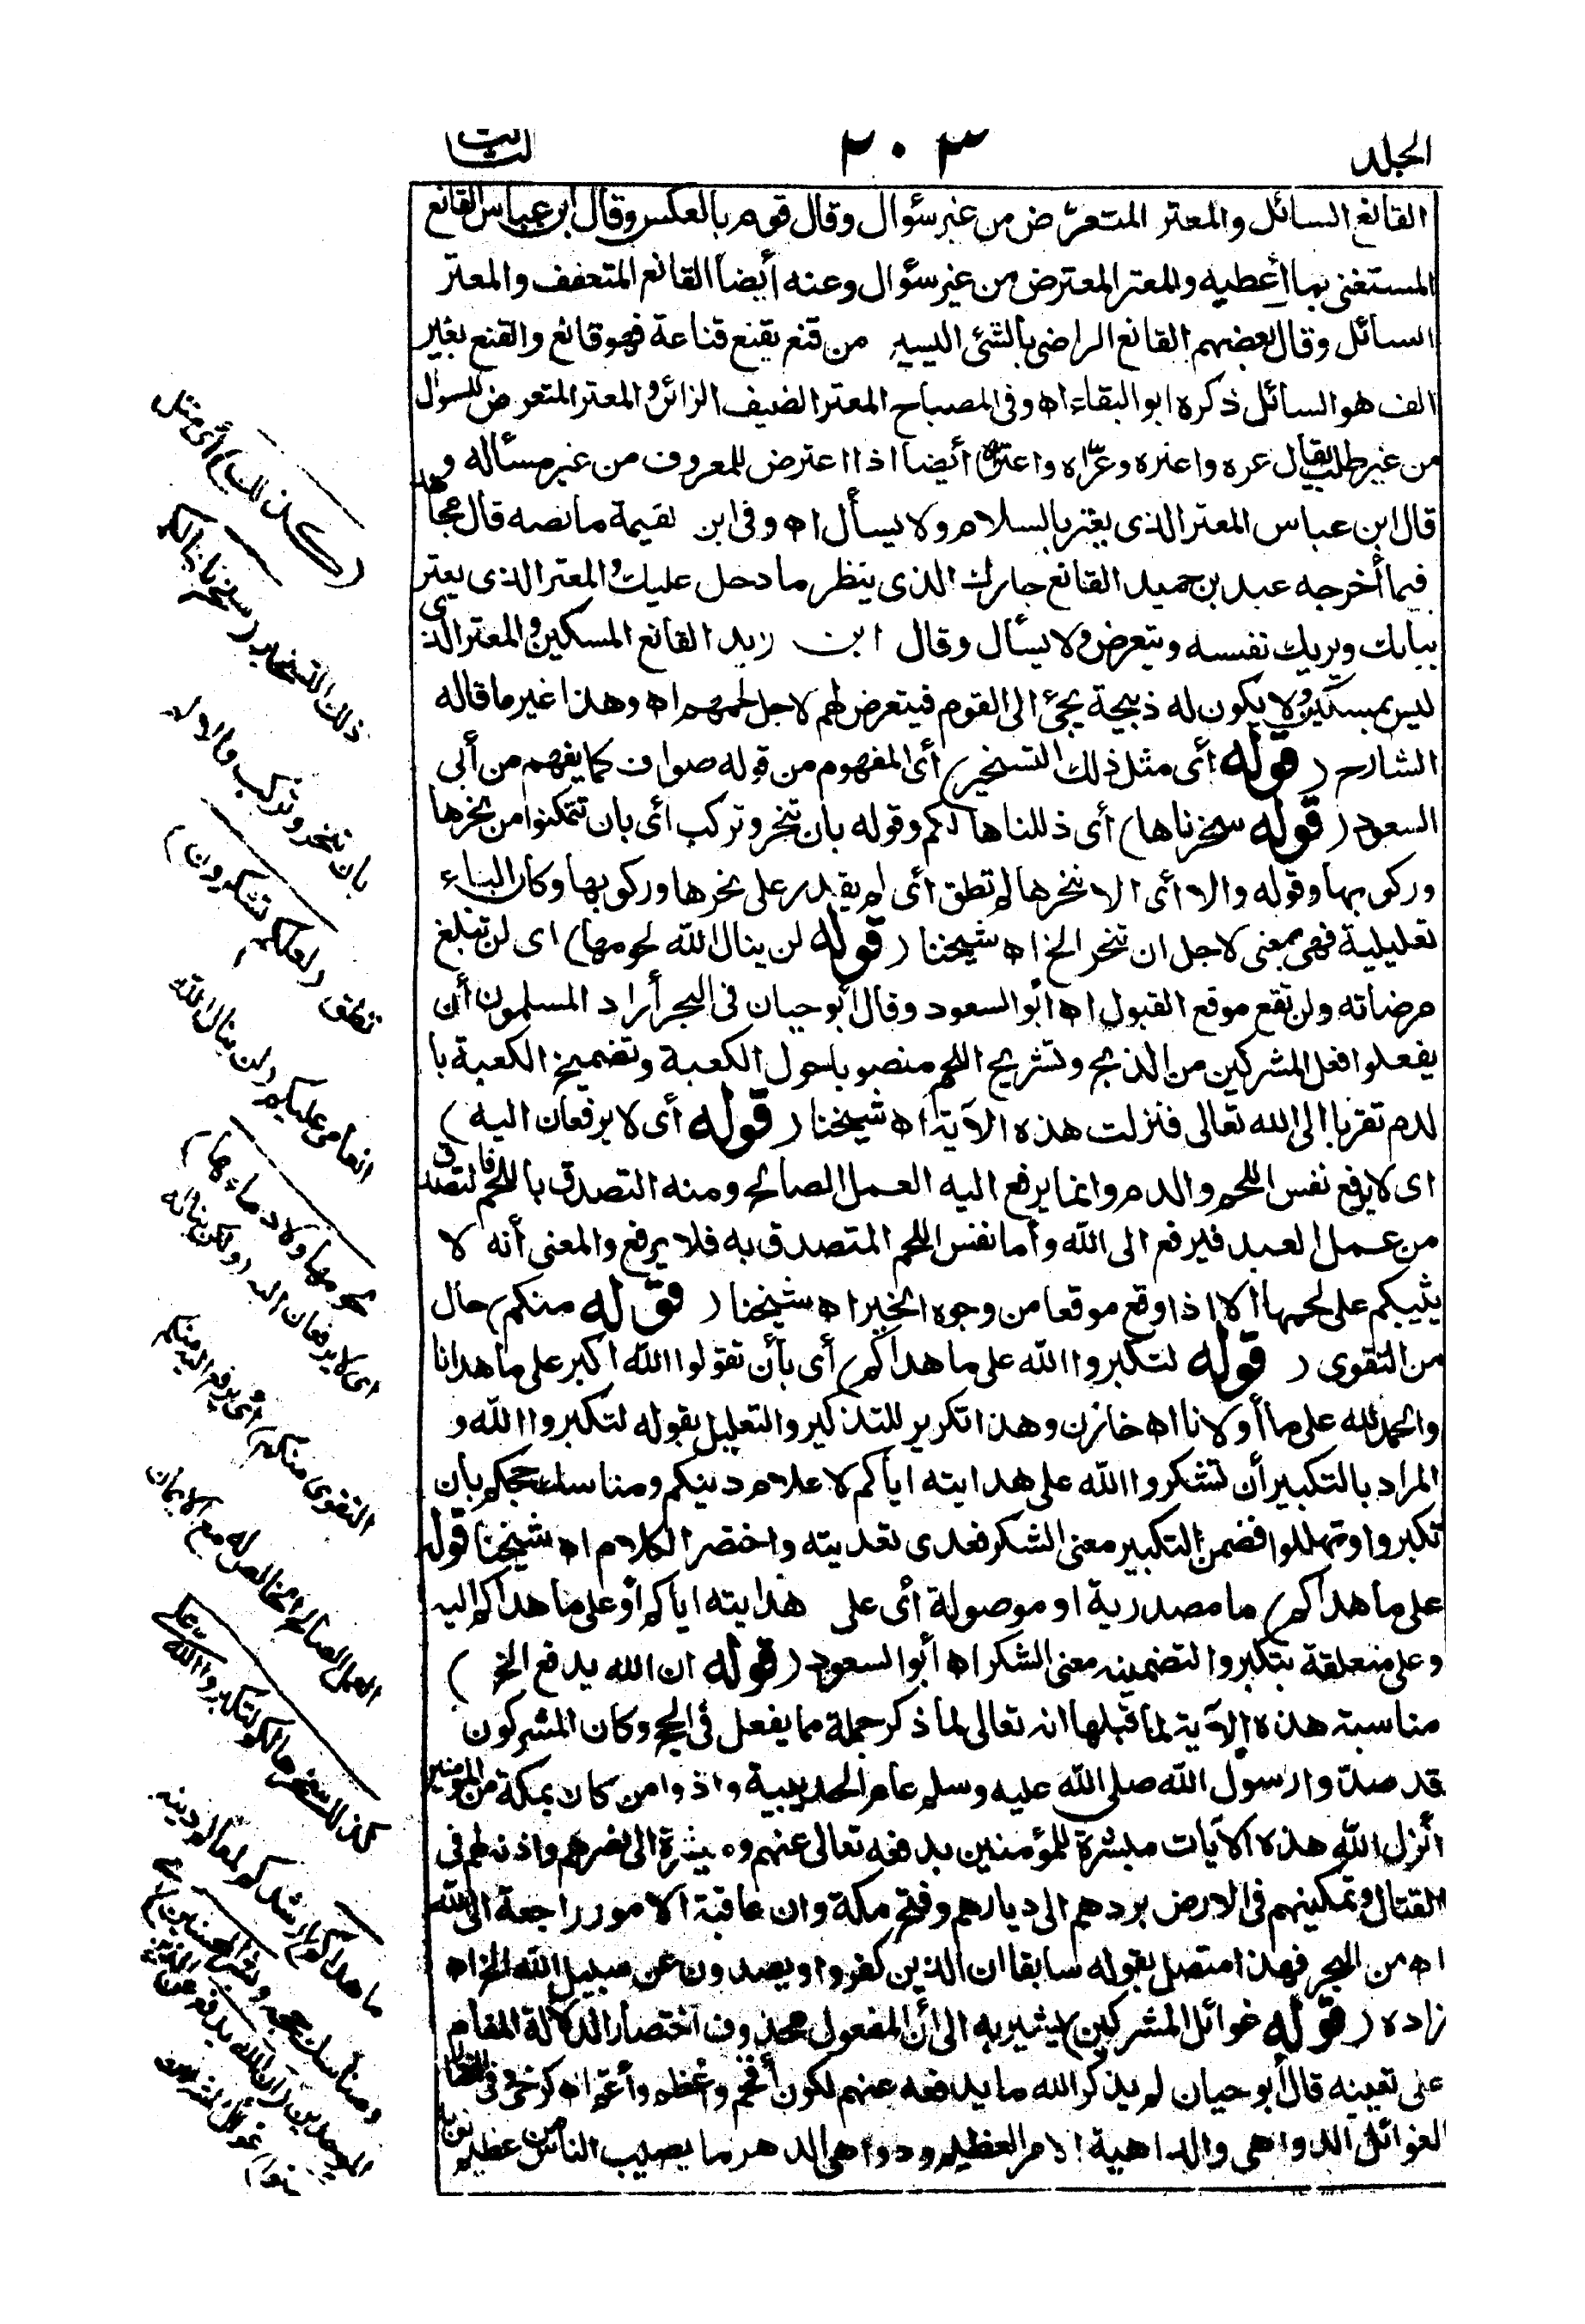 الجلد ٢٠٣ الثالث
القانع السائل والمعتر المتعرّض من غير سؤال وقال قوم بالعكس وقال ابن عباس القانع
المستغنى بما أعطيه والمعتر المعترض من غير سؤال وعنه أيضا القانع المتعفف والمعتر
السائل وقال بعضهم القانع الراضى بالشئ اليسير من قنع يقنع قناعة فهو قانع والقنع بغير
الف هو السائل ذكره ابو البقاء اه وفى المصباح المعتر الضيف الزائر والمعتر المتعرض للسؤال
من غير طلب يقال عره واعتره وعرّاه واعتراه أيضا اذا اعترض للمعروف من غير مسألة و
قال ابن عباس المعتر الذى يعتر بالسلام ولا يسأل اه وفى ابن لقيمة ما نصه قال مجاهد
فيما أخرجه عبد بن حميد القانع جارك الذى ينظر ما دخل عليك والمعتر الذى يعتر
ببابك ويريك نفسه ويتعرض ولا يسأل وقال ابن زيد القانع المسكين والمعتر الذى
ليس بمسكين ولا يكون له ذبيحة يجئ الى القوم فيتعرض لهم لاجل لحمهم اه وهذا غير ما قاله
الشارح (قوله أى مثل ذلك التسخير) أى المفهوم من قوله صواف كما يفهم من أبى
السعود (قوله سخرناها) أى ذللناها لكم وقوله بان تنحر وتركب أى بان تتمكنوا من نحرها
وركوبها وقوله والا أى الا ننحرها لم تطق أى لم يقدر على نحرها وركوبها وكان الباء
تعليلية فهى بمعنى لاجل ان تنحر الخ اه شيخنا (قوله لن ينال الله لحومها) اى لن تبلغ
مرضاته ولن تقع موقع القبول اه ابو السعود وقال أبو حيان فى البحر أراد المسلمون أن
يفعلوا فعل المشركين من الذبح وتشريح اللحم منصوبا حول الكعبة وتضميخ الكعبة با
لدم تقربا الى الله تعالى فنزلت هذه الآية اه شيخنا (قوله أى لا يرفعان اليه)
اى لا يرفع نفس اللحم والدم وانما يرفع اليه العمل الصالح ومنه التصدق باللحم فالتصدق
من عمل العبد فيرفع الى الله وأما نفس اللحم المتصدق به فلا يرفع والمعنى أنه لا
يثيبكم على لحمها الا اذا وقع موقعا من وجوه الخير اه شيخنا (قوله منكم) حال
من التقوى (قوله لتكبروا الله على ما هداكم) أى بأن تقولوا الله اكبر على ما هدانا
والحمد لله على ما أولانا اه خازن وهذا تكرير للتذكير والتعليل بقوله لتكبروا الله و
المراد بالتكبير أن تشكروا الله على هدايته اياكم لاعلام دينكم ومناسك حجكم بأن
تكبروا وتهللوا فضمن التكبير معنى الشكر فعدى تعديته واختصر الكلام اه شيخنا قوله
على ما هداكم) ما مصدرية او موصولة أى على هدايته اياكم أو على ما هداكم اليه
وعلى متعلقة بتكبروا لتضمينه معنى الشكر اه أبو السعود (قوله ان الله يدفع الخ)
مناسبة هذه الآية لما قبلها انه تعالى لما ذكر جملة مما يفعل فى الحج وكان المشركون
قد صدّوا رسول الله صلى الله عليه وسلم عام الحديبية واذوا من كان بمكة من المؤمنين
أنزل الله هذه الآيات مبشرة للمؤمنين بدفعه تعالى عنهم ومشيرة الى نصرهم واذنه لهم فى
القتال وتمكينهم فى الارض بردهم الى ديارهم وفتح مكة وان عاقبة الامور راجعة الى الله
اه من البحر فهذا متصل بقوله سابقا ان الذين كفروا ويصدون عن سبيل الله الخ اه
زاده (قوله غوائل المشركين) يشير به الى أن المفعول محذوف اختصارا لدلالة المقام
على تعيينه قال أبو حيان لم يذكر الله ما يدفعه عنهم ليكون أفخم وأعظم وأعم اه كرخى وفى
الغوائل الدواهى والداهية الامر العظيم ودواهى الدهر ما يصيب الناس من عظيم نوبه
(كذلك) أى مثل
ذلك التسخير (سخرناها لكم)
بان تنحر وتركب والا لم
تطق (لعلكم تشكرون)
انعامى عليكم (لن ينال الله
لحومها ولا دماءها)
اى لا يرفعان اليه (ولكن يناله
التقوى منكم) أى يرفع اليه منكم
العمل الصالح الخالص له مع الايمان
كذلك سخرها لكم لتكبروا الله على
ما هداكم) أرشدكم لمعالم دينه
ومناسك حجه (وبشر المحسنين)
الموحدين (ان الله يدفع عن الذين
آمنوا) غوائل المشركين